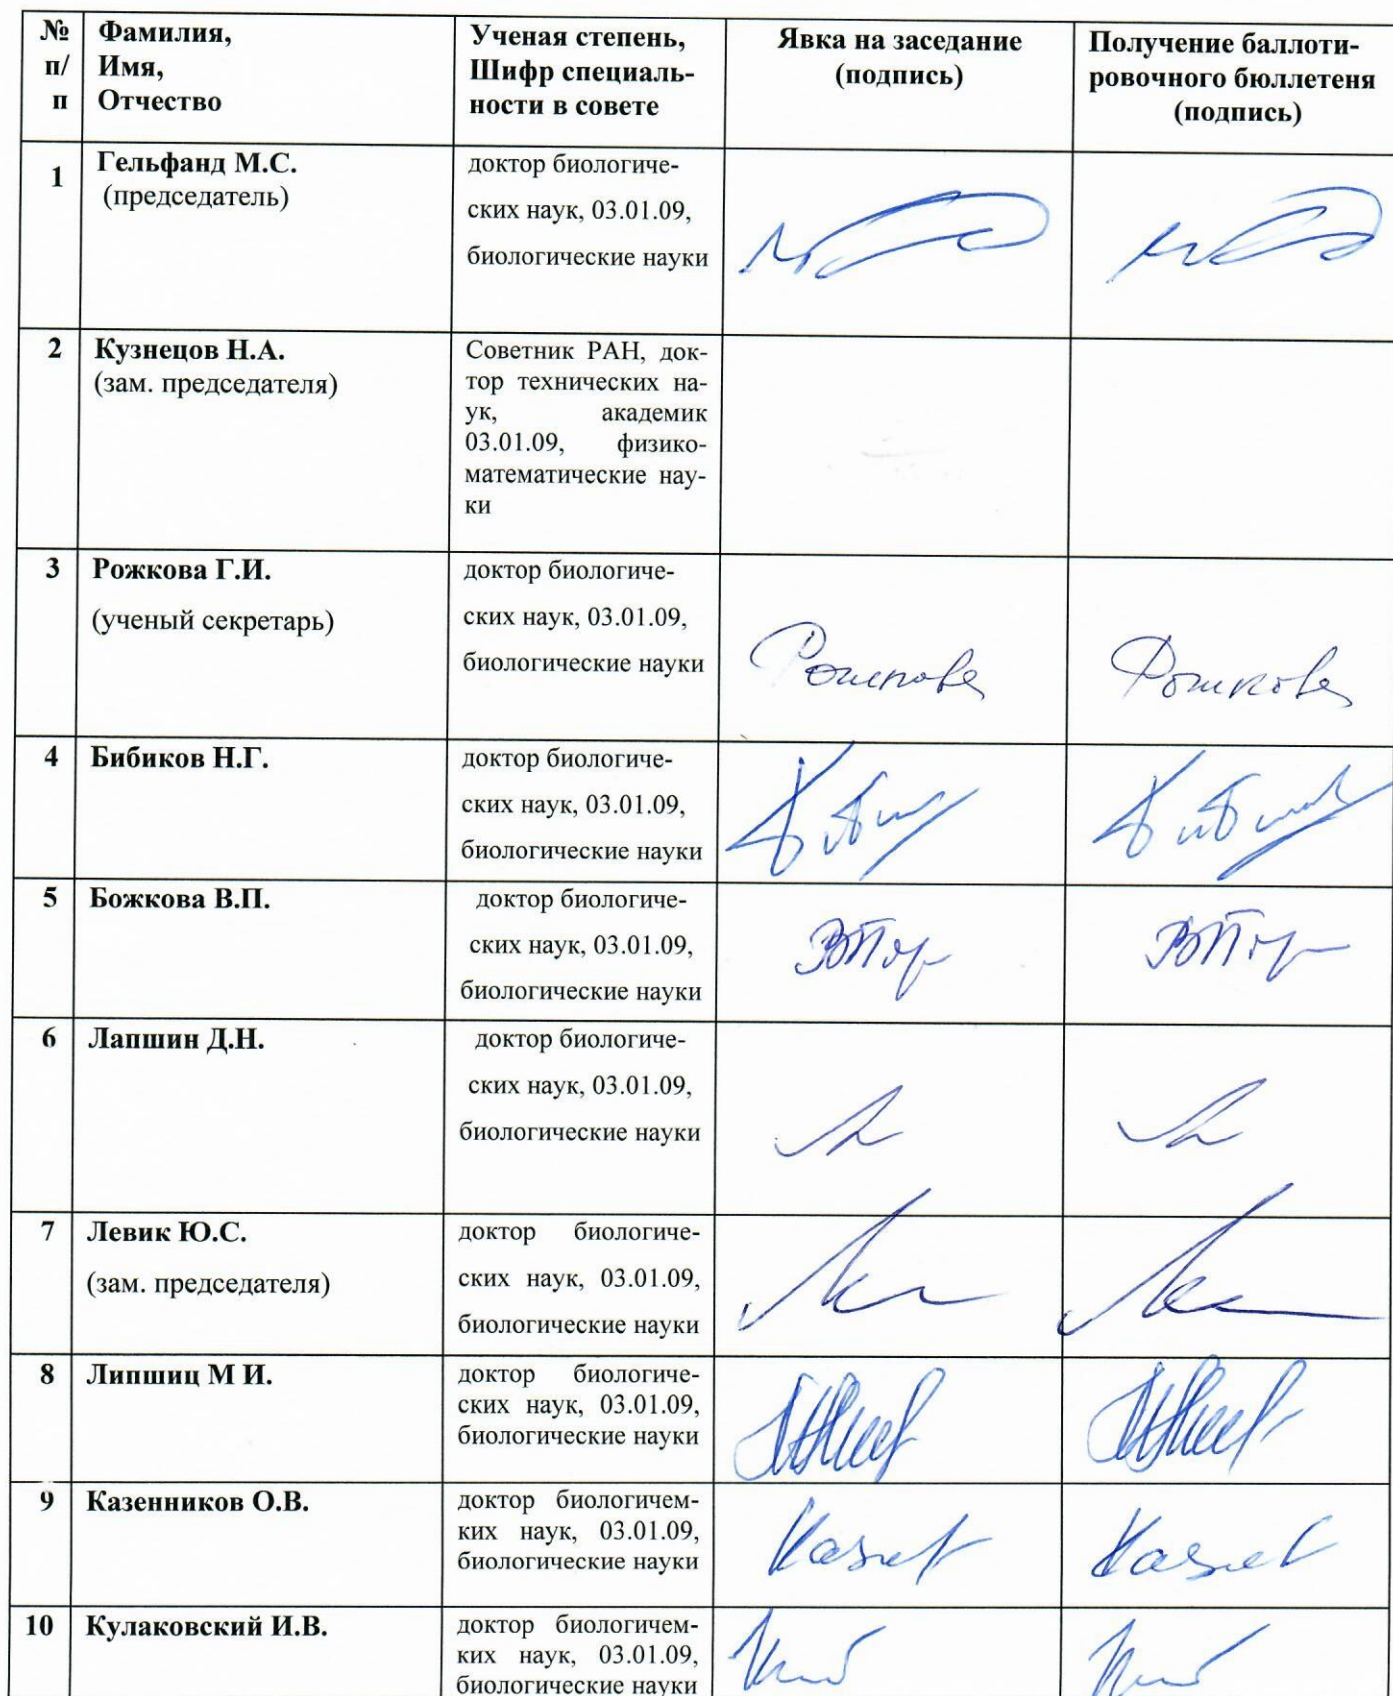 №
п/
п
Фамилия,
Имя,
Отчество
Ученая степень,
Шифр специаль-
ности в совете
Явка на заседание
(подпись)
Получение баллоти-
ровочного бюллетеня
(подпись)
1
Гельфанд М.С.
(председатель)
доктор биологиче-
ских наук, 03.01.09,
биологические науки
2
Кузнецов Н.А.
(зам. председателя)
Советник РАН, док-
тор технических на-
ук, академик
03.01.09, физико-
математические нау-
ки
3
Рожкова Г.И.
(ученый секретарь)
доктор биологиче-
ских наук, 03.01.09,
биологические науки
Рожкова
Рожкова
4
Бибиков Н.Г.
доктор биологиче-
ских наук, 03.01.09,
биологические науки
5
Божкова В.П.
доктор биологиче-
ских наук, 03.01.09,
биологические науки
6
Лапшин Д.Н.
доктор биологиче-
ских наук, 03.01.09,
биологические науки
7
Левик Ю.С.
(зам. председателя)
доктор биологиче-
ских наук, 03.01.09,
биологические науки
8
Липшиц М И.
доктор биологиче-
ских наук, 03.01.09,
биологические науки
9
Казенников О.В.
доктор биологичем-
ких наук, 03.01.09,
биологические науки
10
Кулаковский И.В.
доктор биологичем-
ких наук, 03.01.09,
биологические науки